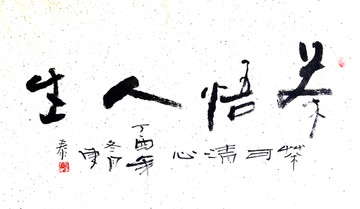 茶悟人生
茶可清心
丁酉年
冬月
泰